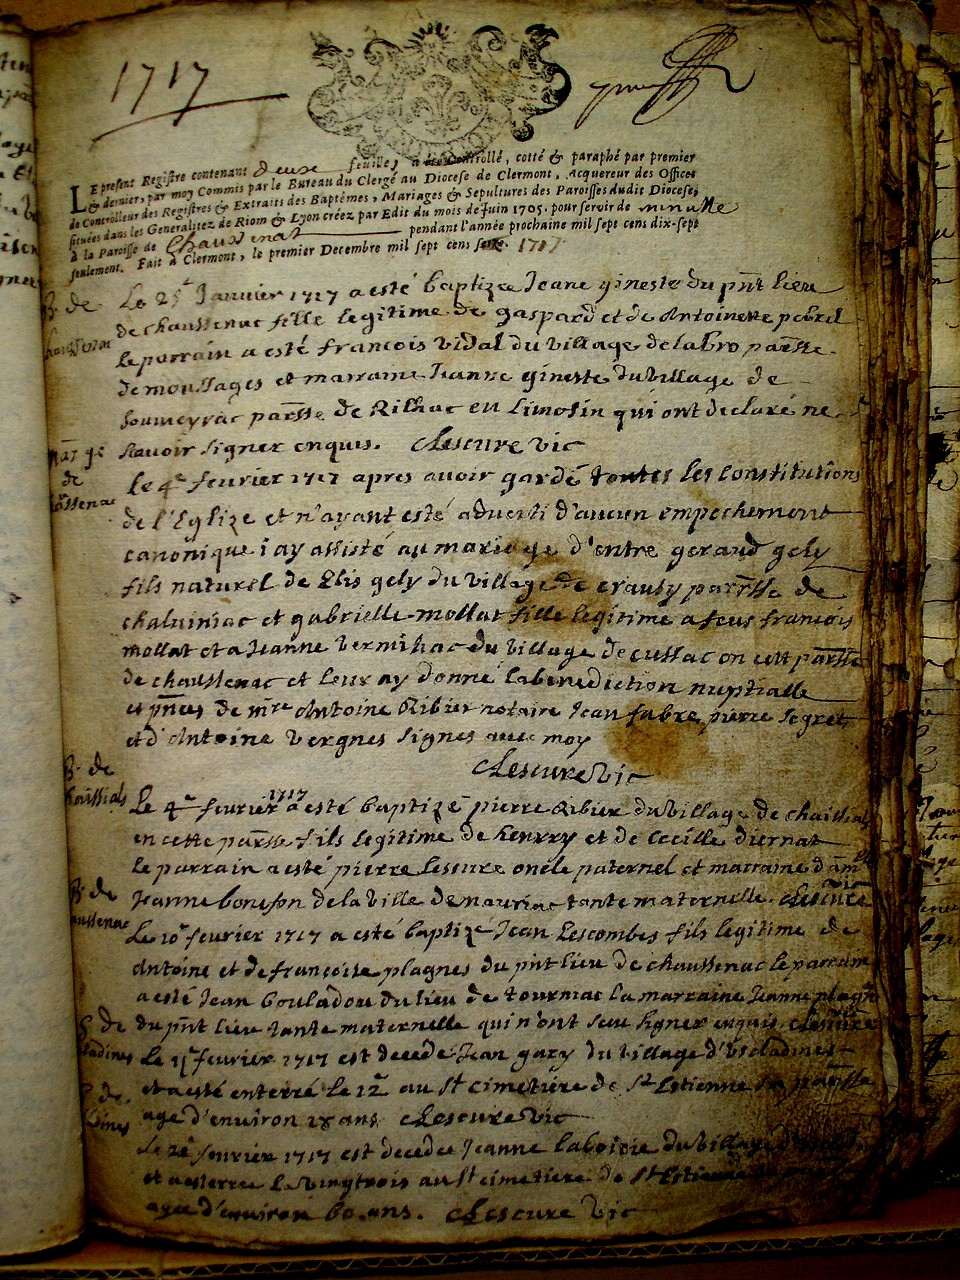 1717
LE present Registre contenant deux feuilles a été Controllé, cotté & paraphé par premier
& dernier, par moy Commis par le Bureau du Clergé au Diocese de Clermont, Acquereur des Offices
de Controlleur des Registres & Extraits des Baptêmes, Mariages & Sepultures des Paroisses dudit Diocese,
situées dans les Generalitez de Riom & Lyon créez par Edit du mois de Juin 1705. pour servir de minutte
à la Paroisse de Chaussenat pendant l'année prochaine mil sept cens dix-sept
seulement. Fait à Clermont, le premier Decembre mil sept cens 1717
B. de
Le 25e Janvier 1717 a esté baptizée Jeane gineste du pnt lieu
de chaussenac fille legitime de gaspard et de Antoinette pebrel
le parrain a esté francois vidal du village de labro parsse
de moussages et marraine Jeanne gineste du village de
Soumeyrac parsse de Rilhac en limosin qui ont declaré ne
scavoir signer enquis. CLescure vic
mar ge
de
chaussenac
Le 4e fevrier 1717 apres avoir gardé toutes les constitutions
de l'Eglize et n'ayant esté adverti d'aucun empechement
canonique i ay assisté au mariage d'entre geraud gely
fils naturel de Elis gely du village de crauty parsse de
chalviniac et gabrielle mollat fille legitime a feus francois
mollat et a Jeanne vermilhac du village de cussac en cett parsse
de chaussenac et leur ay donné la benediction nuptialle
es pnces de mre Antoine Ribier notaire Jean fabre pierre Segret
et d'Antoine vergnes signes avec moy
CLescure vic
B. de
chaissials
Le 4e fevrier 1717 a esté baptizé pierre Ribier du village de chaissials
en cette parsse fils legitime de henrry et de cecille diernat
le parrain a esté pierre lescure oncle paternel et marraine dam
Jeanne bonefon de la ville de mauriac tante maternelle. CLescure
B. de
chaussenac
Le 10e fevrier 1717 a esté baptizé Jean Lescombes fils legitime de
Antoine et de francoise plagnes du pnt lieu de chaussenac le parrain
a esté Jean bouladou du lieu de tourniac la marraine Jeanne plagnes
du pnt lieu tante maternelle qui n'ont sceu signer enquis CLescure
S. de
Le 11e fevrier 1717 est decedé Jean gary du village d'
et a esté enterré le 12e au St cimetiere de St Estienne sa parsse
age d'environ 18 ans CLescure vic
S. de
Le 22e fevrier 1717 est decedee Jeanne laboirie du village
et a enterree le vingtrois au St cimetiere de St Estienne
agee d'environ 60 ans. CLescure vic